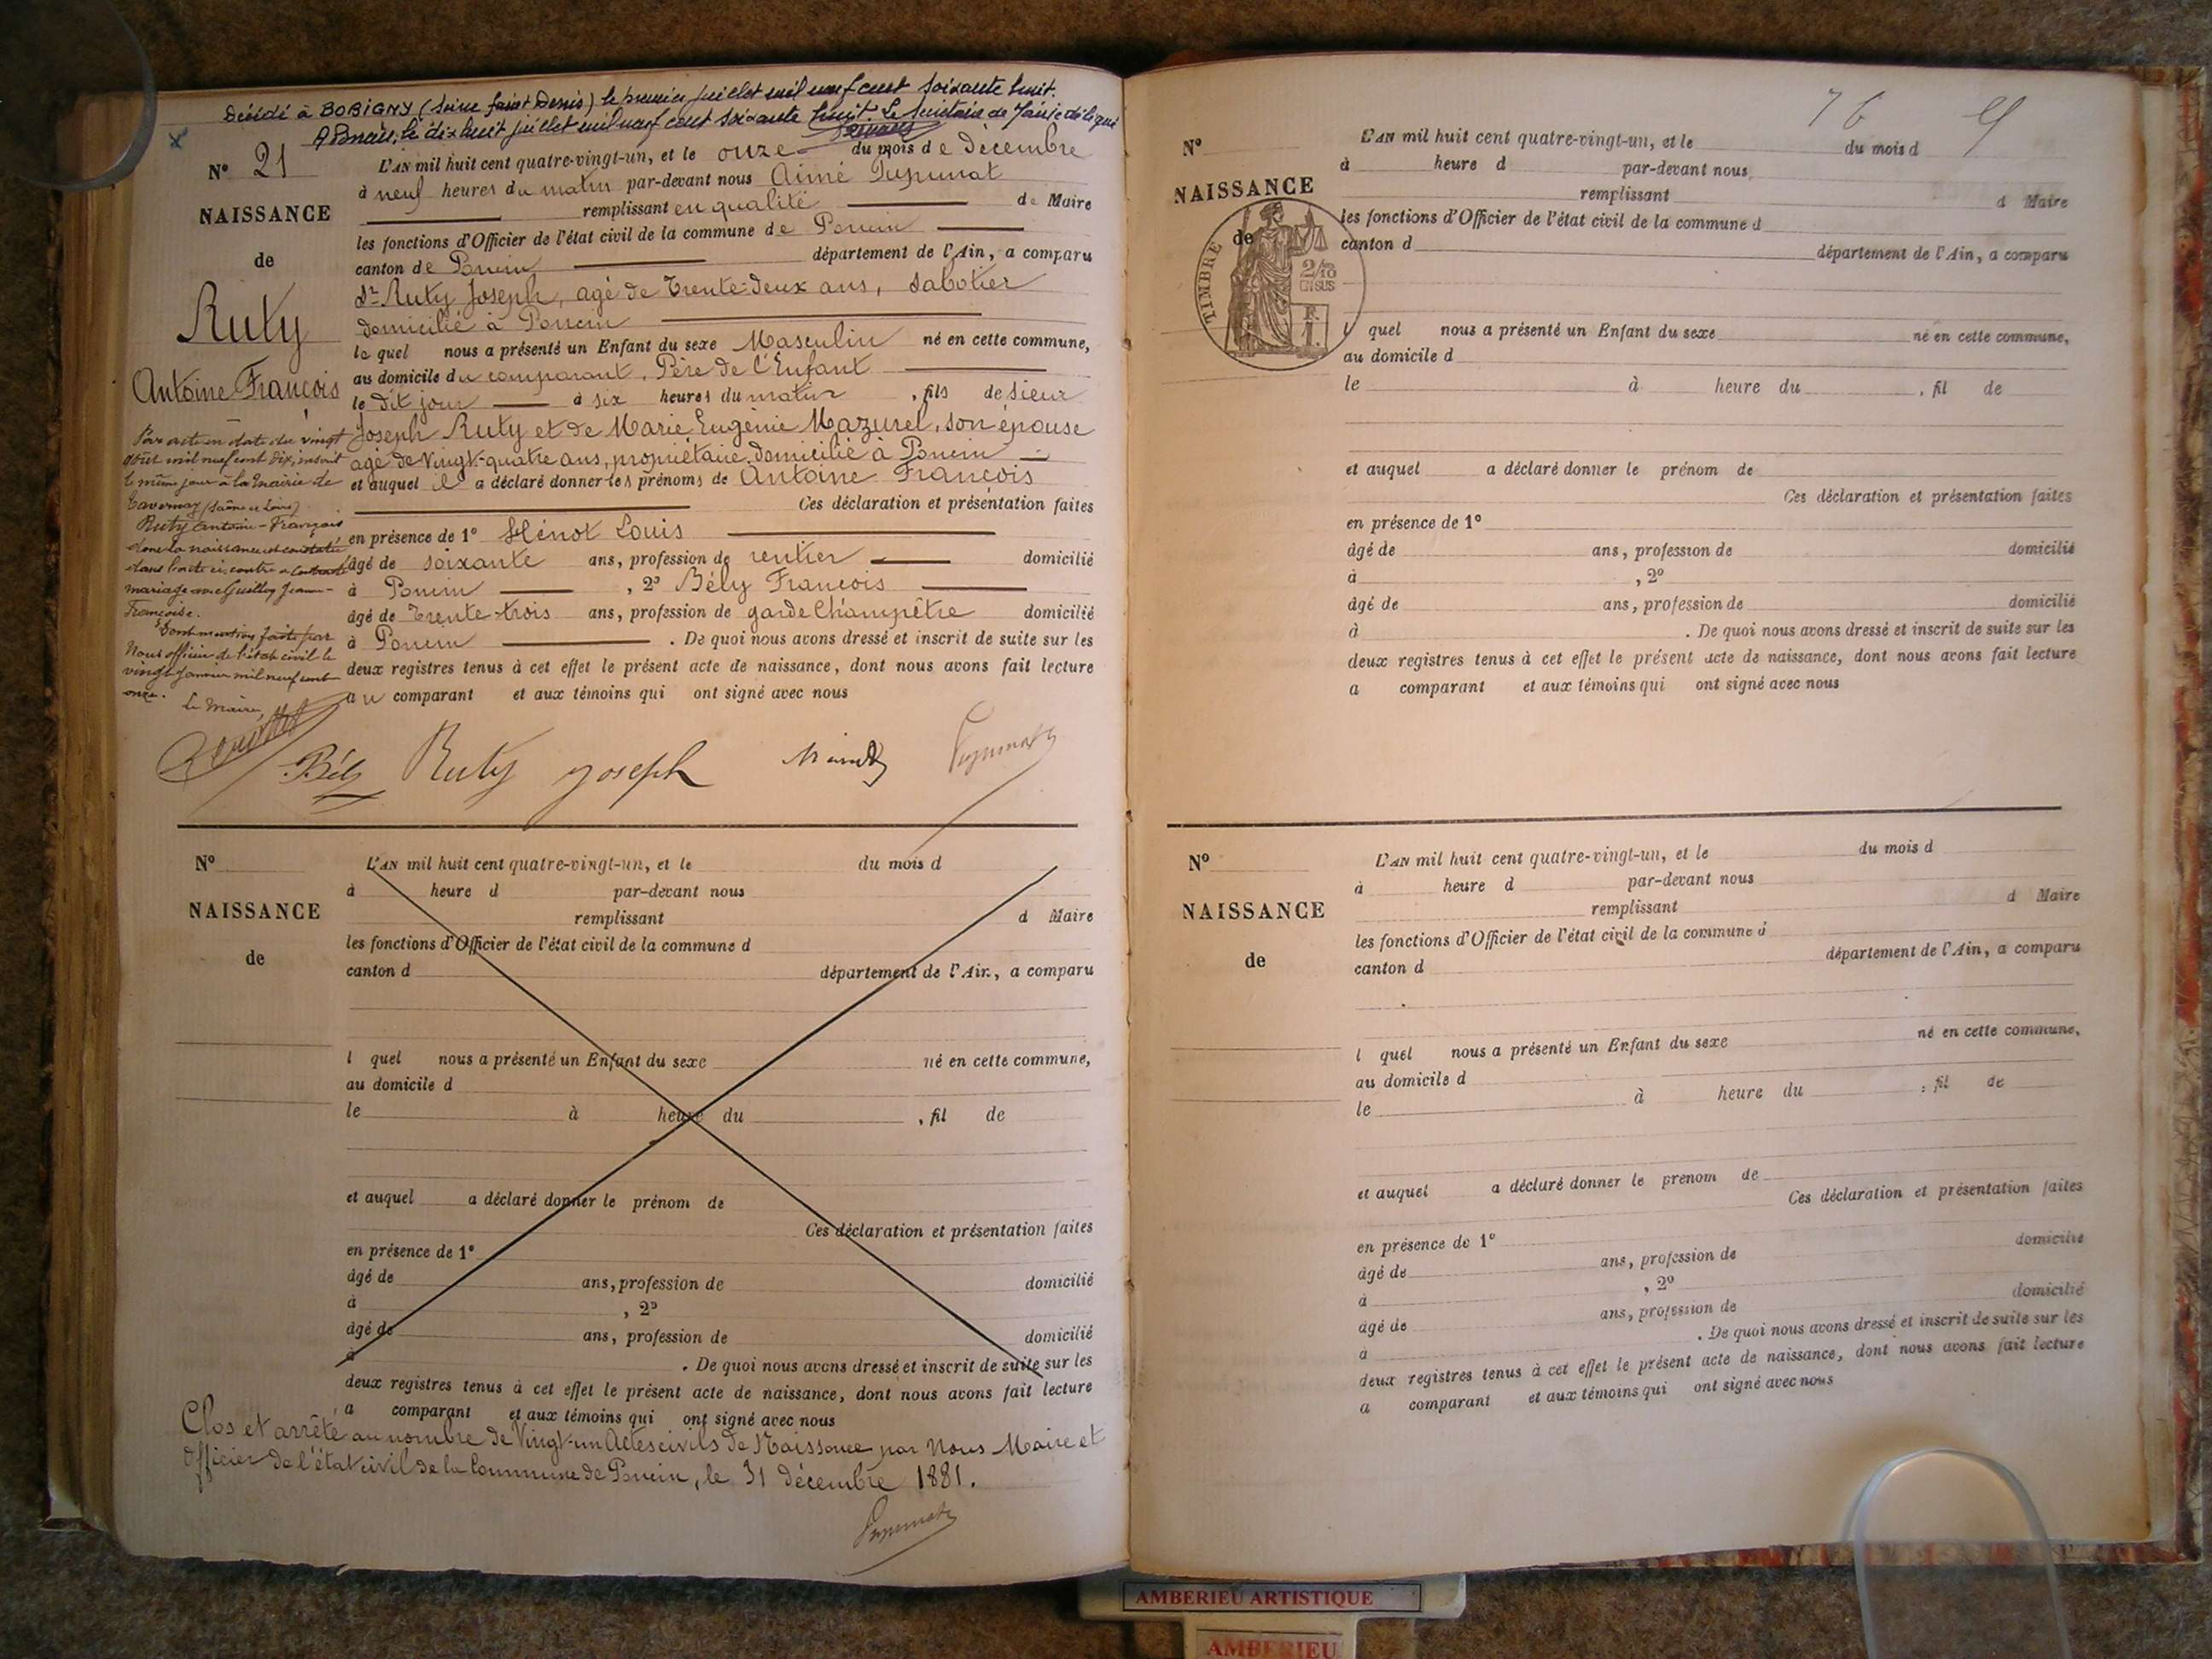 Décédé à BOBIGNY (Seine Saint Denis) le premier juillet mil neuf cent soixante huit.
A Poncin, le dix huit juillet mil neuf cent soixante huit. Le Secrétaire de Mairie délégué
N° 21
NAISSANCE
de
Ruty
Antoine François
L'AN mil huit cent quatre-vingt-un, et le onze du mois de Décembre
à neuf heures du matin par-devant nous Aimé
remplissant en qualité de Maire
les fonctions d'Officier de l'état civil de la commune de Poncin
canton de Poncin département de l'Ain, a comparu
Sr Ruty Joseph, agé de Trente-Deux ans, Sabotier
domicilié à Poncin
le quel nous a présenté un Enfant du sexe Masculin né en cette commune,
au domicile du comparant, Père de l'Enfant
le dit jour à six heures du matin, fils de sieur
Joseph Ruty et de Marie Eugénie Mazurel, son épouse
agé de Vingt-quatre ans, propriétaire, domicilié à Poncin
et auquel il a déclaré donner les prénoms de Antoine François
Ces déclaration et présentation faites
en présence de 1° Louis
âgé de soixante ans, profession de rentier domicilié
à Poncin, 2° Bély François
âgé de Trente-trois ans, profession de garde Champêtre domicilié
à Poncin. De quoi nous avons dressé et inscrit de suite sur les
deux registres tenus à cet effet le présent acte de naissance, dont nous avons fait lecture
au comparant et aux témoins qui ont signé avec nous
Par acte en date du vingt
août mil neuf cent dix, inscrit
le même jour à la Mairie de
Tavernay (Saône et Loire)
Ruty Antoine-François
dont la naissance est constatée
dans l'acte ci-contre a contracté
mariage avec Guilloy Jeanne-
Françoise.
Dont mention faite par
Nous officier de l'état civil le
vingt janvier mil neuf cent
onze.
Le Maire,
Bély Ruty joseph
N°
NAISSANCE
de
L'AN mil huit cent quatre-vingt-un, et le du mois d
à heure d par-devant nous
remplissant d Maire
les fonctions d'Officier de l'état civil de la commune d
canton d département de l'Ain, a comparu
l quel nous a présenté un Enfant du sexe né en cette commune,
au domicile d
le à heure du , fil de
et auquel a déclaré donner le prénom de
Ces déclaration et présentation faites
en présence de 1°
âgé de ans, profession de domicilié
à , 2°
âgé de ans, profession de domicilié
à . De quoi nous avons dressé et inscrit de suite sur les
deux registres tenus à cet effet le présent acte de naissance, dont nous avons fait lecture
a comparant et aux témoins qui ont signé avec nous
Clos et arrêté au nombre de Vingt-un Actes civils de Naissance par Nous Maire et
Officier de l'état civil de la Commune de Poncin, le 31 décembre 1881.
76
N°
NAISSANCE
de
TIMBRE
2/10
EN SUS
L'AN mil huit cent quatre-vingt-un, et le du mois d
à heure d par-devant nous
remplissant d Maire
les fonctions d'Officier de l'état civil de la commune d
canton d département de l'Ain, a comparu
l quel nous a présenté un Enfant du sexe né en cette commune,
au domicile d
le à heure du , fil de
et auquel a déclaré donner le prénom de
Ces déclaration et présentation faites
en présence de 1°
âgé de ans, profession de domicilié
à , 2°
âgé de ans, profession de domicilié
à . De quoi nous avons dressé et inscrit de suite sur les
deux registres tenus à cet effet le présent acte de naissance, dont nous avons fait lecture
a comparant et aux témoins qui ont signé avec nous
N°
NAISSANCE
de
L'AN mil huit cent quatre-vingt-un, et le du mois d
à heure d par-devant nous
remplissant d Maire
les fonctions d'Officier de l'état civil de la commune d
canton d département de l'Ain, a comparu
l quel nous a présenté un Enfant du sexe né en cette commune,
au domicile d
le à heure du , fil de
et auquel a déclaré donner le prénom de
Ces déclaration et présentation faites
en présence de 1°
âgé de ans, profession de domicilié
à , 2°
âgé de ans, profession de domicilié
à . De quoi nous avons dressé et inscrit de suite sur les
deux registres tenus à cet effet le présent acte de naissance, dont nous avons fait lecture
a comparant et aux témoins qui ont signé avec nous
AMBERIEU ARTISTIQUE
AMBERIEU